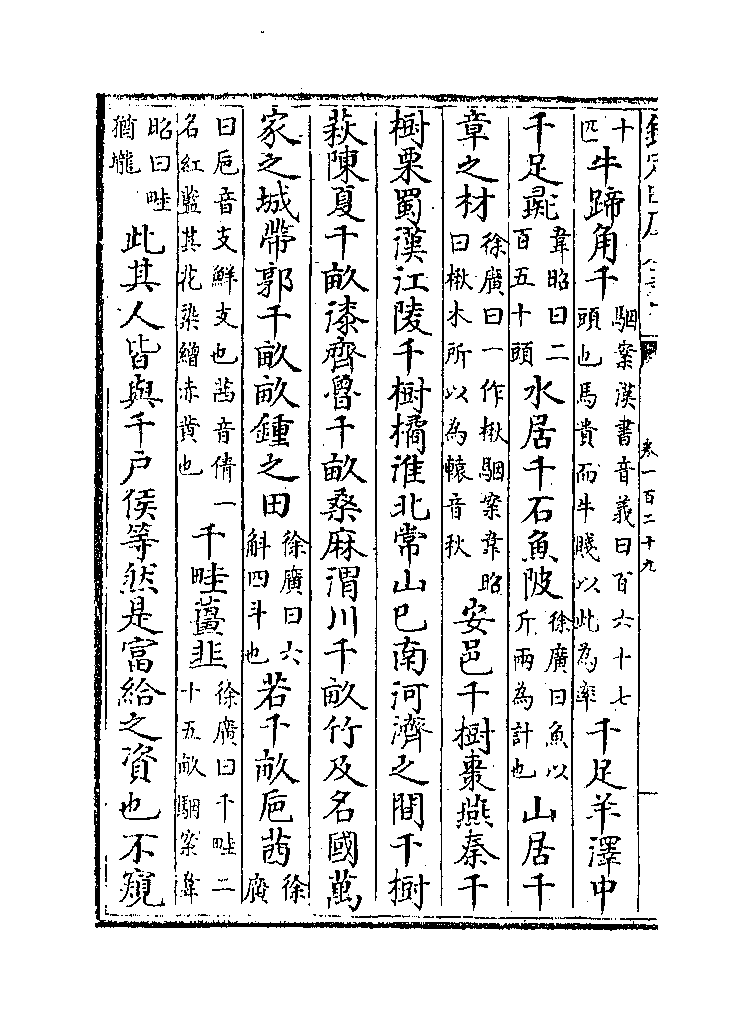 卷一百二十九
十匹牛蹄角千駰案漢書音義曰百六十七頭也馬貴而牛賤以此為率千足羊澤中
千足彘韋昭曰二百五十頭水居千石魚陂徐廣曰魚以斤兩為計也山居千
章之材徐廣曰一作楸駰案韋昭曰楸木所以為轅音秋安邑千樹棗燕秦千
樹栗蜀漢江陵千樹橘淮北常山已南河濟之間千樹
萩陳夏千畝漆齊魯千畝桑麻渭川千畝竹及名國萬
家之城帶郭千畝畝鍾之田徐廣曰六斛四斗也若千畝巵茜徐廣
曰巵音支鮮支也茜音倩一名紅藍其花染繒赤黄也千畦薑韭徐廣曰千畦二十五畝駰案韋
昭曰畦猶壠此其人皆與千户侯等然是富給之資也不窺